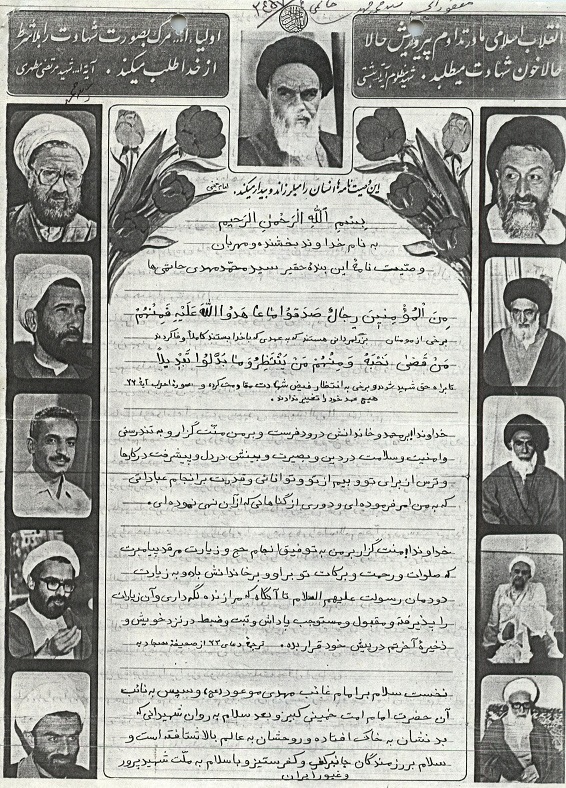 انقلاب اسلامی ما در تداوم پیروزیش حالا
حالا خون شهادت میطلبد. شهید مظلوم آیة... بهشتی
اولیاء الله مرگ بصورت شهادت را بلاشرط
از خدا طلب میکند. آیة الله شهید مرتضی مطهری
این وصیت نامه ها، انسان را میلرزاند و بیدار میکند. امام خمینی
بِسمِ اللهِ الرَحمٰنِ الرَحیمِ
به نام خداوند بخشنده و مهربان
وصیت نامهٔ این بندهٔ حقیر سید محمد مهدی حاتمی ها
مِنَ الْمُؤْمِنینَ رِجالٌ صَدَقُوا ما عاهَدُوا اللهَ عَلَیْهِ فَمِنْهُمْ
برخی از مومنان بزرگمردانی هستند که به عهدی که با خدا بستند کاملاً وفا کردند
مَنْ قَضیٰ نَحْبَهُ وَ مِنْهُمْ مَنْ یَنْتَظِرُ وَ ما بَدَّلُوا تَبْدیلاً
تا براه حق شهید شدند و برخی به انتظار فیض شهادت مقاومت کرده و سورهٔ احزاب آیهٔ ۲۳
هیچ عهد خود را تغییر ندادند.
خداوندا بر محمد و خاندانش درود فرست و بر من منّت گزار و به تندرستی
و امنیت و سلامت در دین و بصیرت و بینش در دل و پیشرفت در کارها
و ترس از برای تو و بیم از تو و توانائی و قدرت بر انجام عباداتی
که به من امر فرموده ای و دوری از گناهانی که از آن نهی نموده ای.
خداوندا منت گزار بر من به توفیق انجام حج و زیارت مرقد پیامبرت
که صلوات و رحمت و برکات تو بر او و بر خاندانش باد و به زیارت
دودمان رسولت علیهم السلام تا آنگاه که مرا زنده نگهداری و آن زیارات
را پذیرفته و مقبول و مستوجب پاداش و ثبت و ضبط در نزد خویش و
ذخیرهٔ آخرتم در پیش خود قرار بده. ترجمهٔ دعای ۲۳ از صحیفهٔ سجادیه
نخست سلام بر امام غائب مهدی موعود (عج) و سپس به نائب
آن حضرت امام امت خمینی کبیر و بعد سلام به روان شهیدانی که
بدنشان به خاک افتاده و روحشان به عالم بالا شتافته است و
سلام بر رزمندگان جان بر کف و کفر ستیز و با سلام به ملّت شهید پرور
و غیور ایران